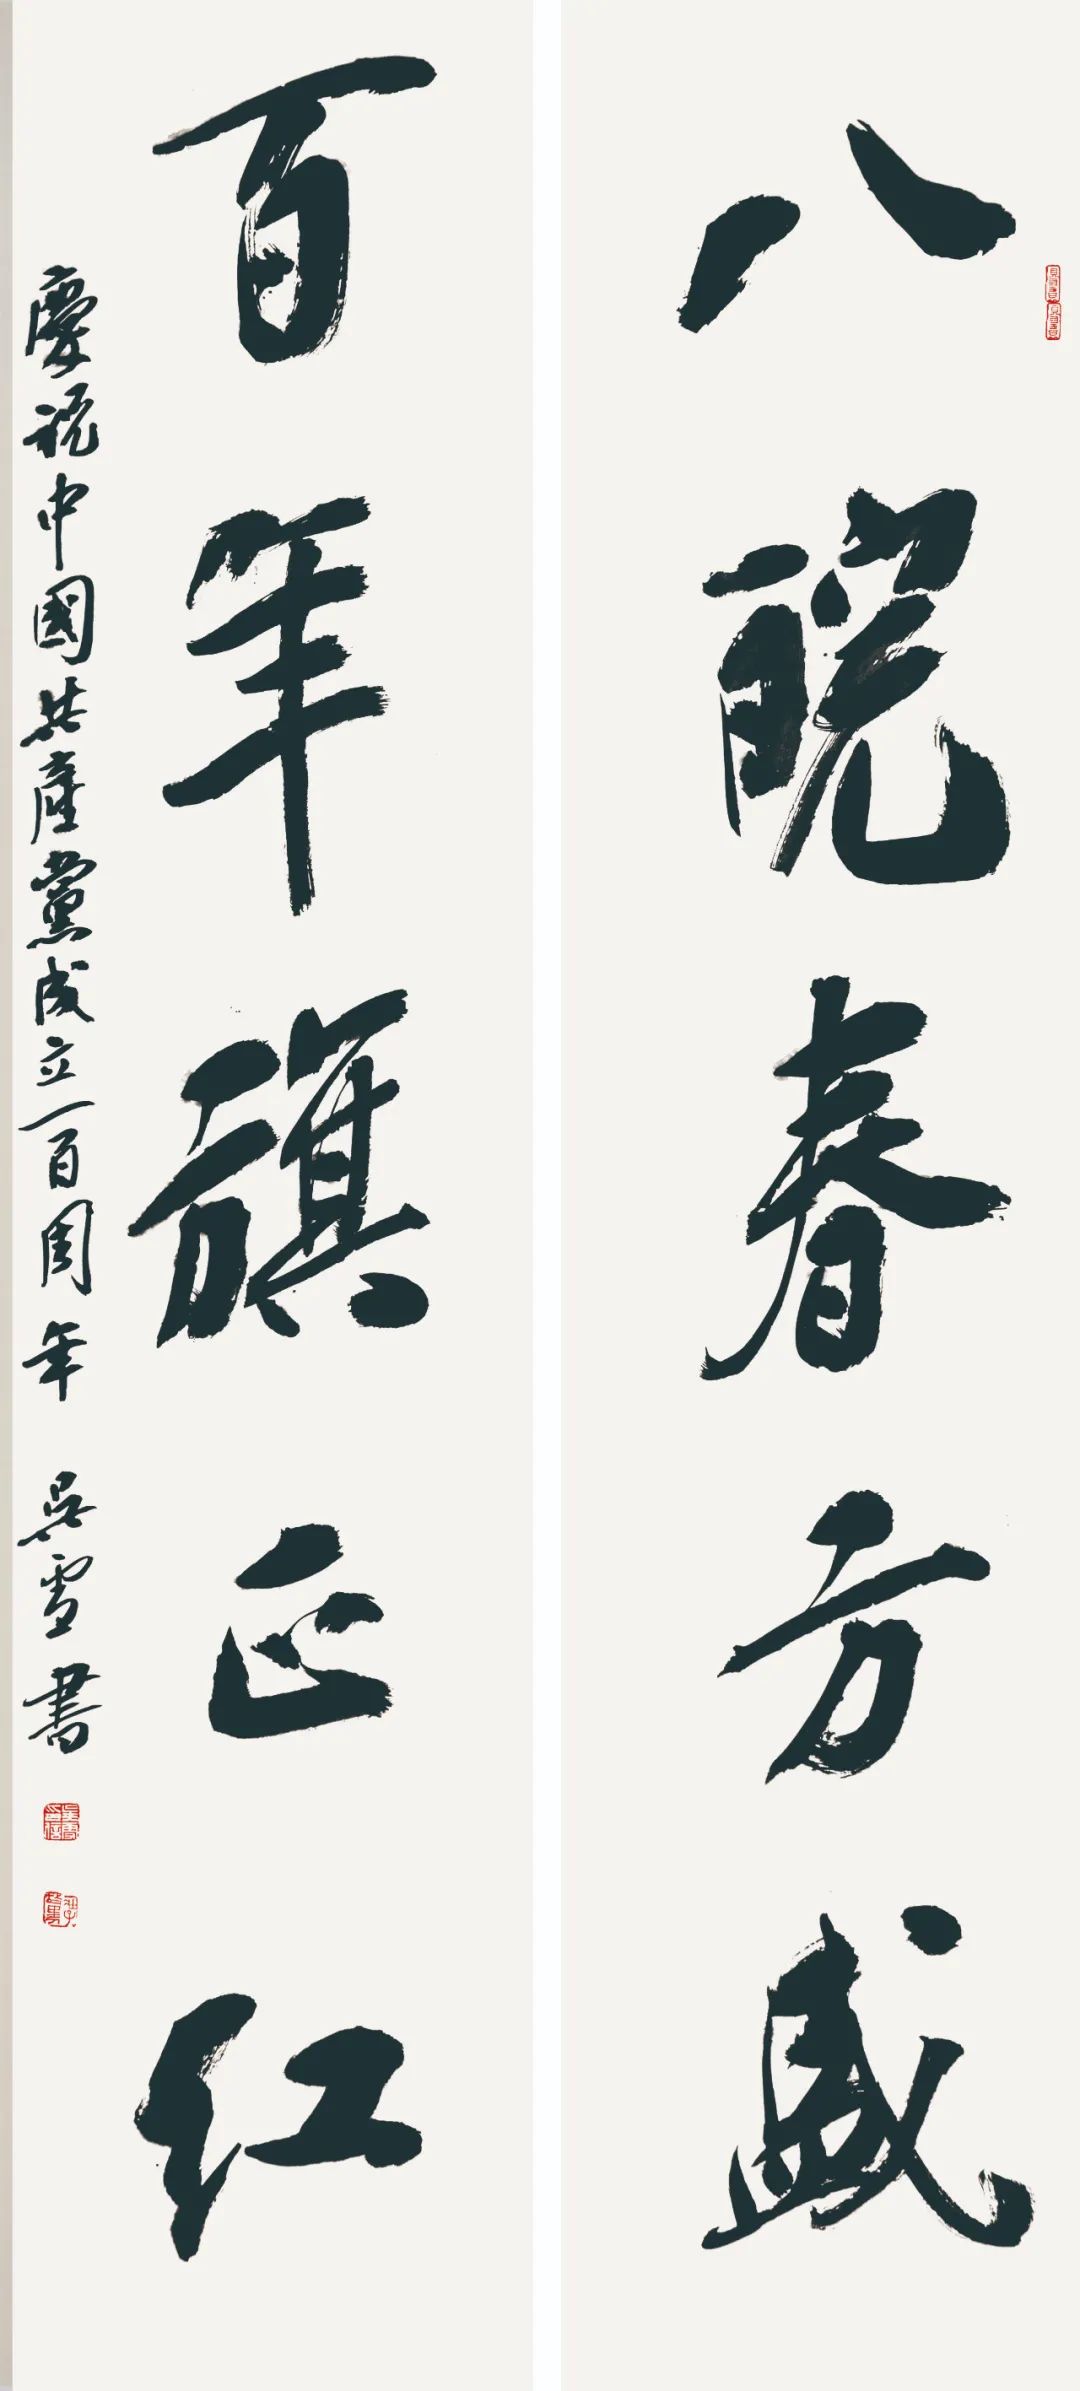 八皖春方盛
百年旗正红
慶祝中國共產黨成立一百周年 吳雪書